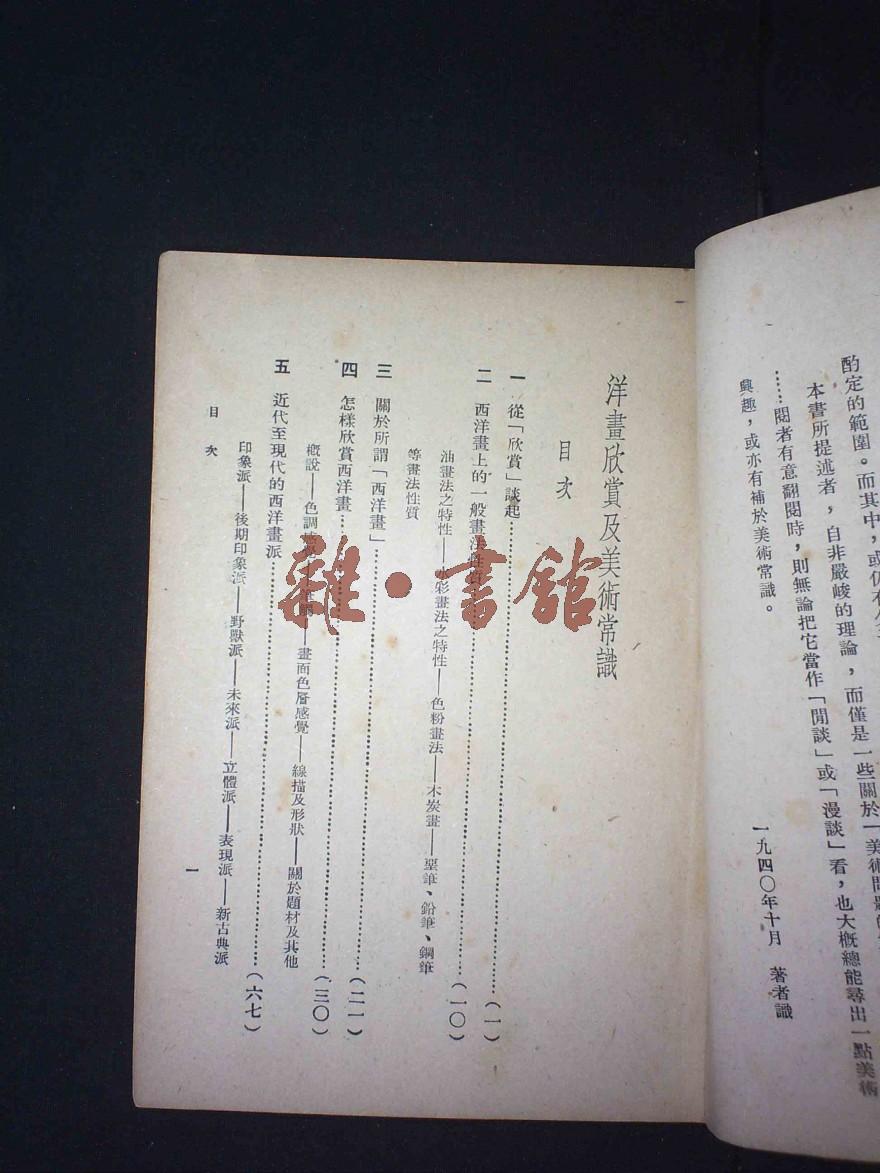 酌定的範圍。而其中，或仍有
本書所提述者，自非嚴峻的理論，而僅是一些關於一美術問題
……閱者有意翻閱時，則無論把它當作「閒談」或「漫談」看，也大概總能尋出一點美術
興趣，或亦有補於美術常識。
一九四〇年十月　著者識
洋畫欣賞及美術常識
目次
一　從「欣賞」談起……（一）
二　西洋畫上的一般畫法性質……（一〇）
油畫法之特性——水彩畫法之特性——色粉畫法——木炭畫——堊筆、鉛筆、鋼筆
等畫法性質
三　關於所謂「西洋畫」……（二一）
四　怎樣欣賞西洋畫……（三〇）
概說——色調感覺——畫面色層感覺——線描及形狀——關於題材及其他
五　近代至現代的西洋畫派……（六七）
印象派——後期印象派——野獸派——未來派——立體派——表現派——新古典派
目次
一
雜·書館